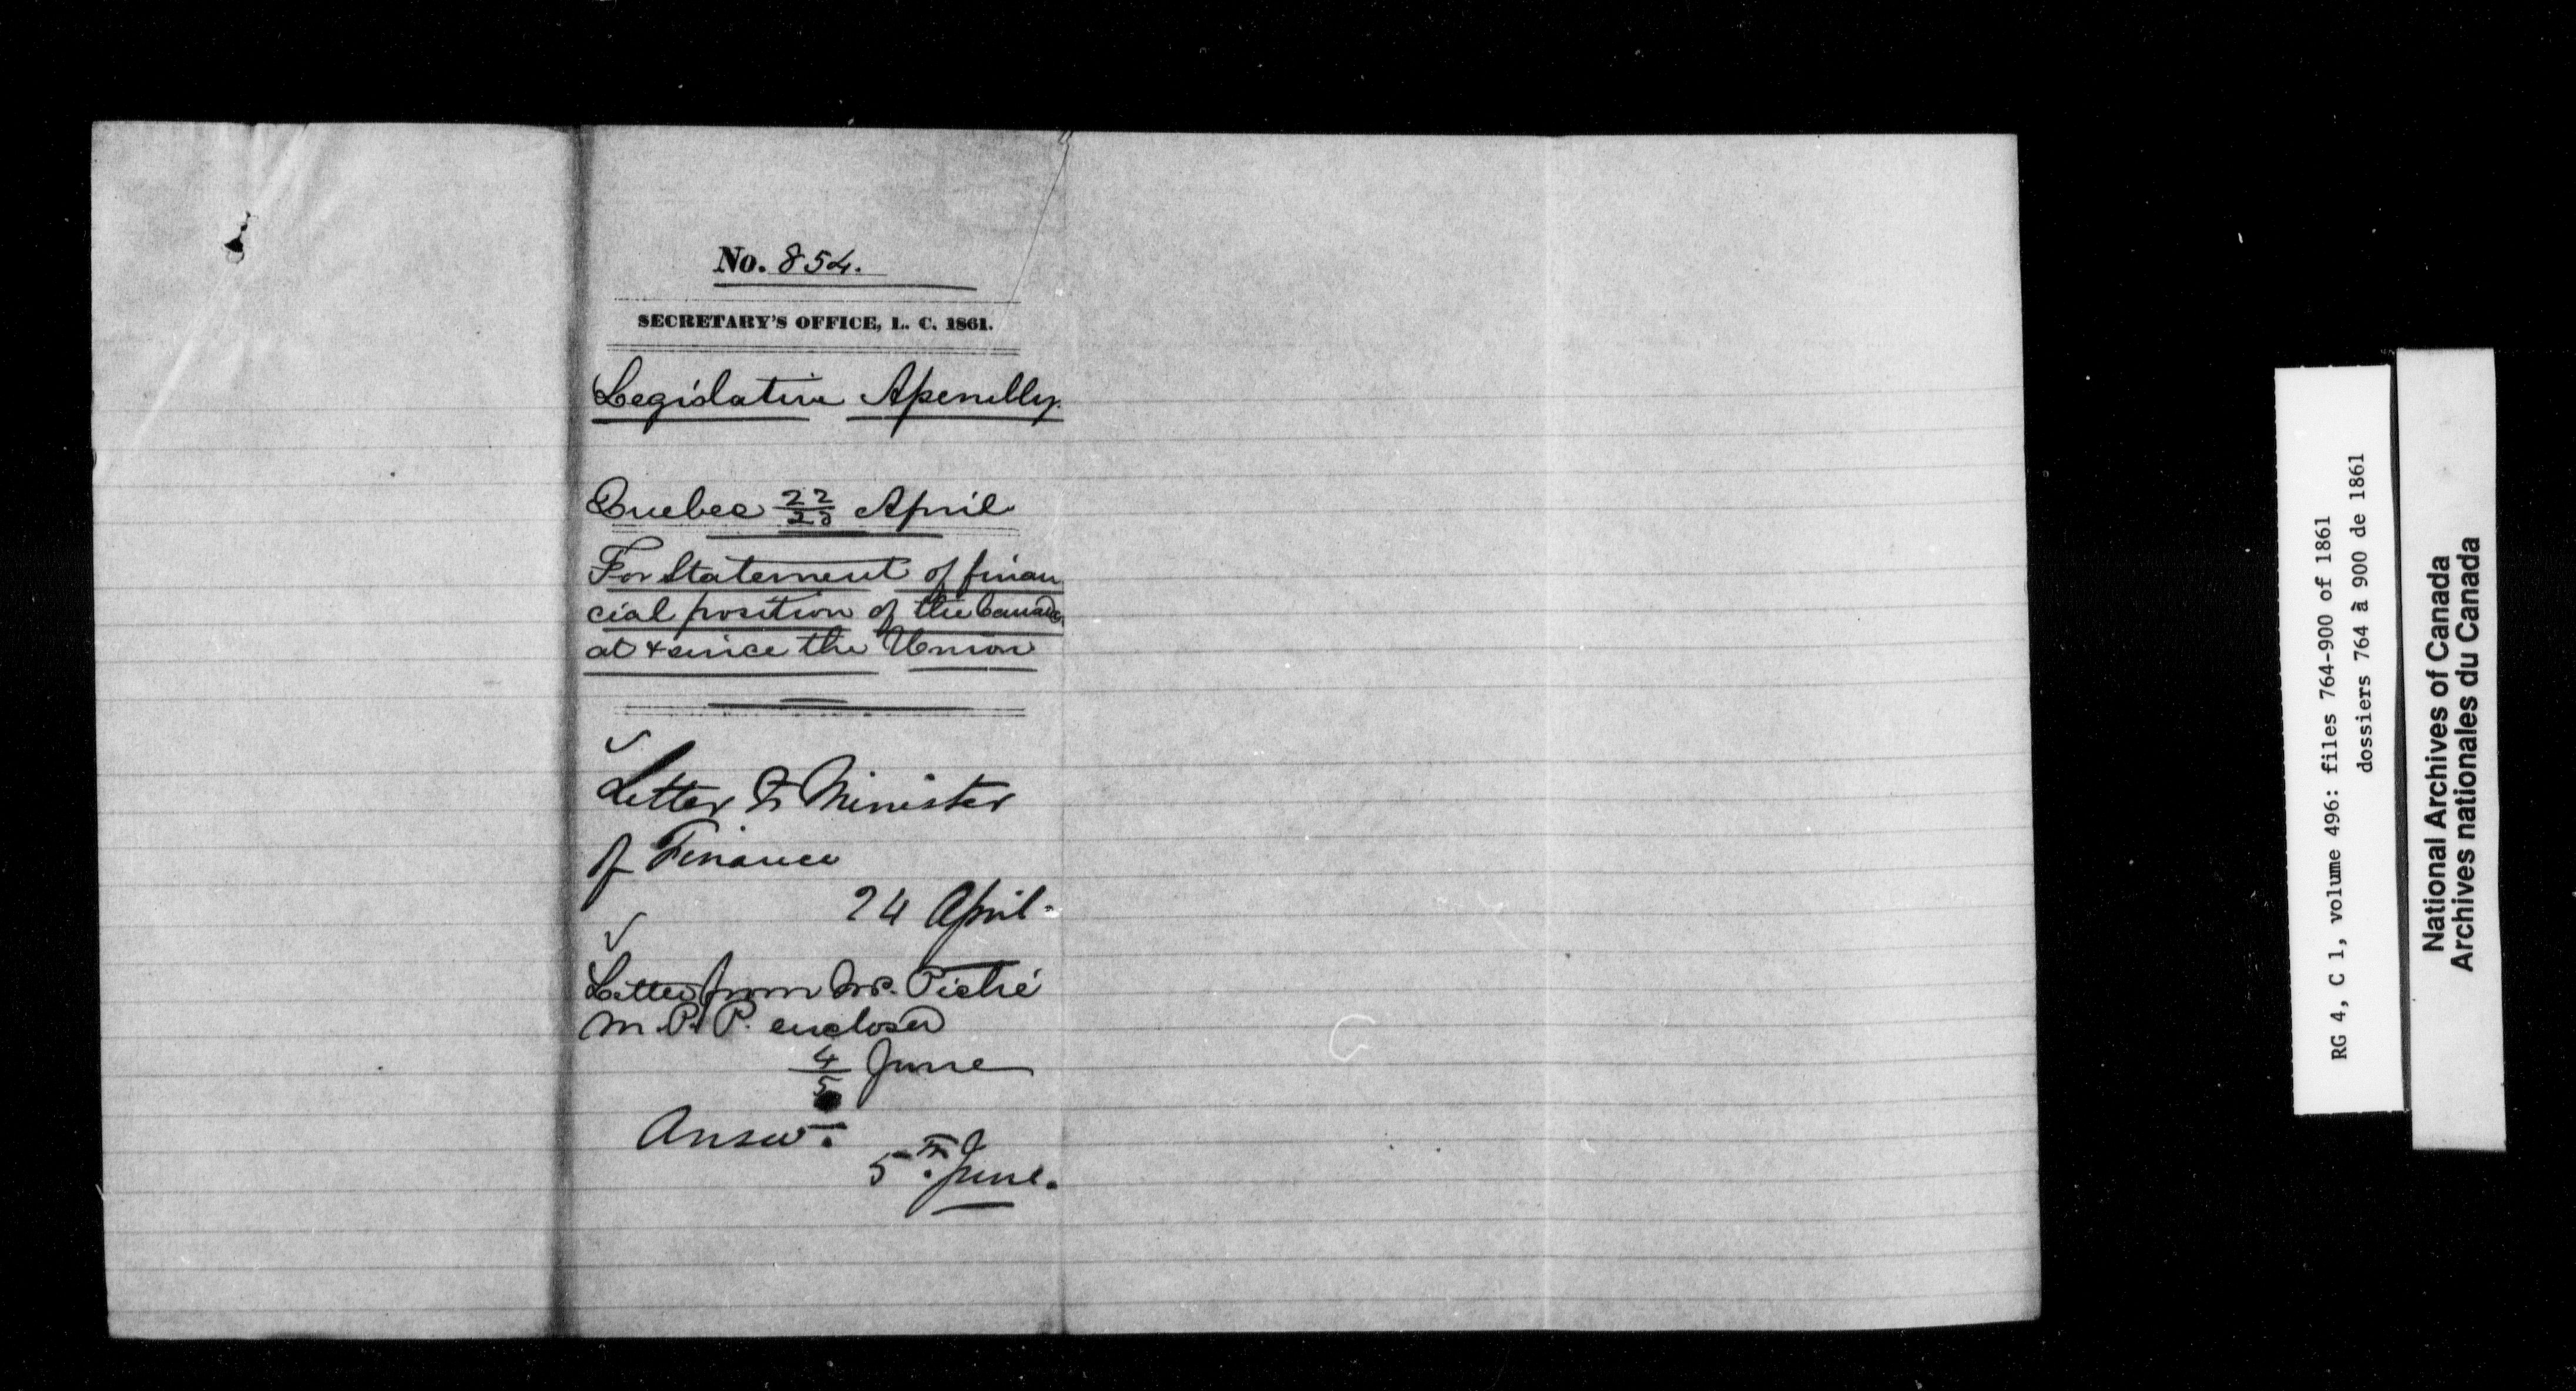 No. 854.
SECRETARY'S OFFICE, L. C. 1861.
Legislative Assembly.
Quebec 22/23 April
For Statement of finan
cial position of the Canadas
at & since the Union
Letter to Minister
of Finance
24 April.
Letter from Mr. Piché
M.P.P. enclosed
4/5 June
Answ.
5th June.
RG 4, C 1, volume 496: files 764-900 of 1861
dossiers 764 à 900 de 1861
National Archives of Canada
Archives nationales du Canada